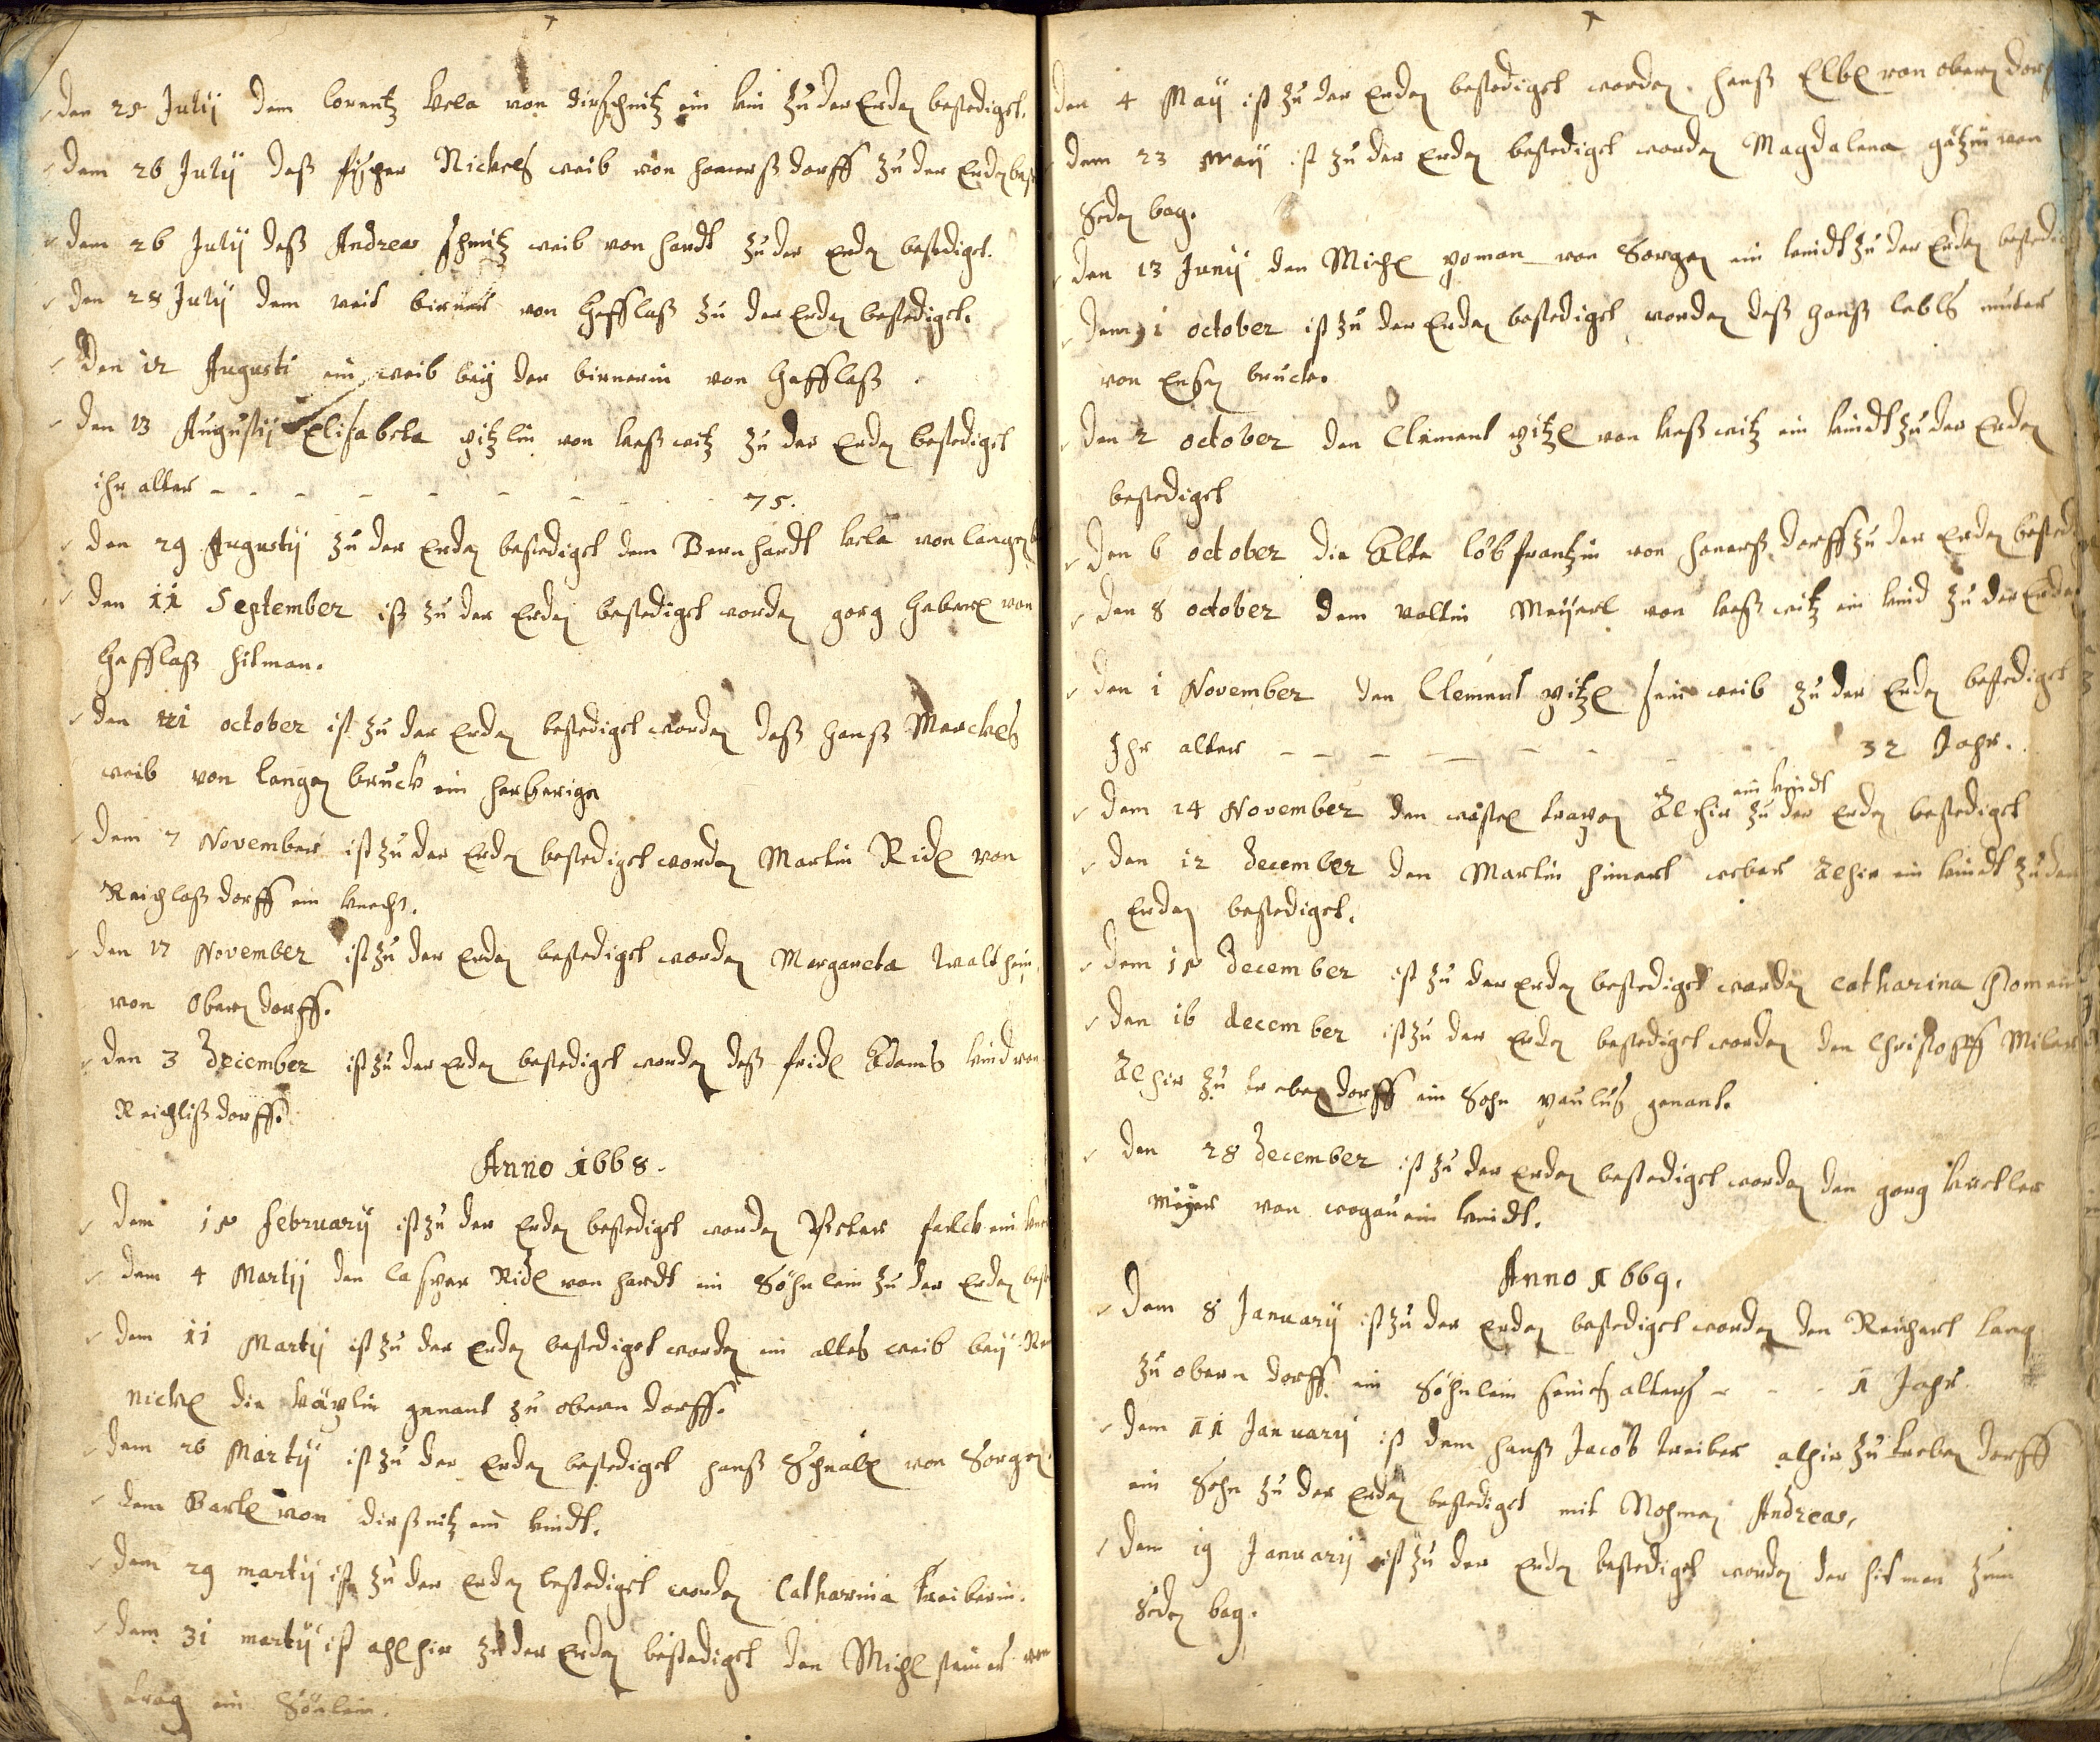 den 25 Julij dem lorentz von dirschnitz ein kin zu der Erden bestedigt.
dem 26 Julij deß fischer Nickels weib von honerß dorff zu der Erden
dem 26 Julij deß Andreas schmitz weib von hardt zu der Erden bestedigt.
den 28 Julij dem veit birner von Gefflaß zu der Erden bestedigt.
Den 12 Augusti ein weib beÿ der birnerin von Gefflaß.
den 13 Augustij Elisabeta pitzlin von kaßwitz zu der Erden bestedigt
ihr alter - - - - - - - - 75.
den 29 Augustij zu der Erden bestedigt dem Bernhardt von
den 11 September ist zu der Erden bestedigt worden gorg Haberl von
Gefflaß hitman.
den october ist zu der Erden bestedigt worden deß Hanß Merckels
weib von langen bruck ein herberigen
dem 7 November ist zu der Erden bestedigt worden Martin Ridl von
Reichlaß dorff ein knecht.
den 17 November ist zu der Erden bestedigt worden Margareta
von Obern dorff.
den 3 December ist zu der Erden bestedigt worden deß fridl Adams kind von
Reichliß dorff.
Anno 1668.
dem 15 february ist zu der Erden bestedigt worden ein
dem 4 Martij den Casper Ridl von hardt ein Söhnlein zu der Erden
dem 11 Martij ist zu der Erden bestedigt worden ein altes weib beÿ
nickl die genant zu obern dorff.
dem 26 Martij ist zu der Erden bestedigt hanß Schnabl von Sorgen.
dem Bartl von dirßnitz ein kindt.
dem 29 martij ist zu der Erden bestedigt worden Catharina Treiberin.
dem 31 martij ist ahlhir zu der Erden bestedigt den Michl steiner von
ein Sönlein.
den 4 Maij ist zu der Erden bestedigt worden. hanß Elbl von obern dorf
dem 23 Maij ist zu der Erden bestedigt worden Magdalena götzin von
Seden bag.
den 13 Junij den Michl poman von Sorgen ein kindt zu der Erden
dem 1 october ist zu der Erden bestedigt worden deß Hanß lebls muter
von Ensen bruck.
den 2 october den Clement pitzl von kaßwitz ein kindt zu der Erden
bestedigt
den 6 october die Alte löb frantzin von honerß dorff zu der Erden
den 8 october dem valtin Meÿerl von kaßwitz ein kind zu der Erden
den 1 November den Clement pitzl sein weib zu der Erden bestedigt
Ihr alter - - - - - - - 32 Jahr.
ein kindt
dem 14 November den alhir zu der Erden bestedigt
den 12 december den Martin weber alhir ein kindt zu der
Erden bestedigt.
dem 15 december ist zu der Erden bestedigt worden catharina
den 16 december ist zu der Erden bestedigt worden den Christoff
alhir zu troben dorff ein Sohn paulus genant.
den 28 December ist zu der Erden bestedigt worden den gorg
Meÿer von wogau ein kindt.
Anno 1669.
dem 8 Januarij ist zu der Erden bestedigt worden den Reichart lang
zu obern dorff ein Söhnlein seines alters - - - 1 Jahr
dem 11 Januarij ist dem hanß Jacob treiber alhir zu troben dorff
ein Sohn zu der Erden bestedigt mit Nahmen Andreas.
dem 19 Januarij ist zu der Erden bestedigt worden der hitman zum
Seden bag.